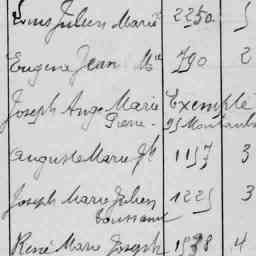 Louis Julien Marie 2250
Eugène Jean Mie 790 2
Joseph Ange Marie Exempté
Pierre
Auguste Marie Jh 1157 3
Joseph Marie Julien 1225 3
Toussaint
René Marie Joseph 1538 4